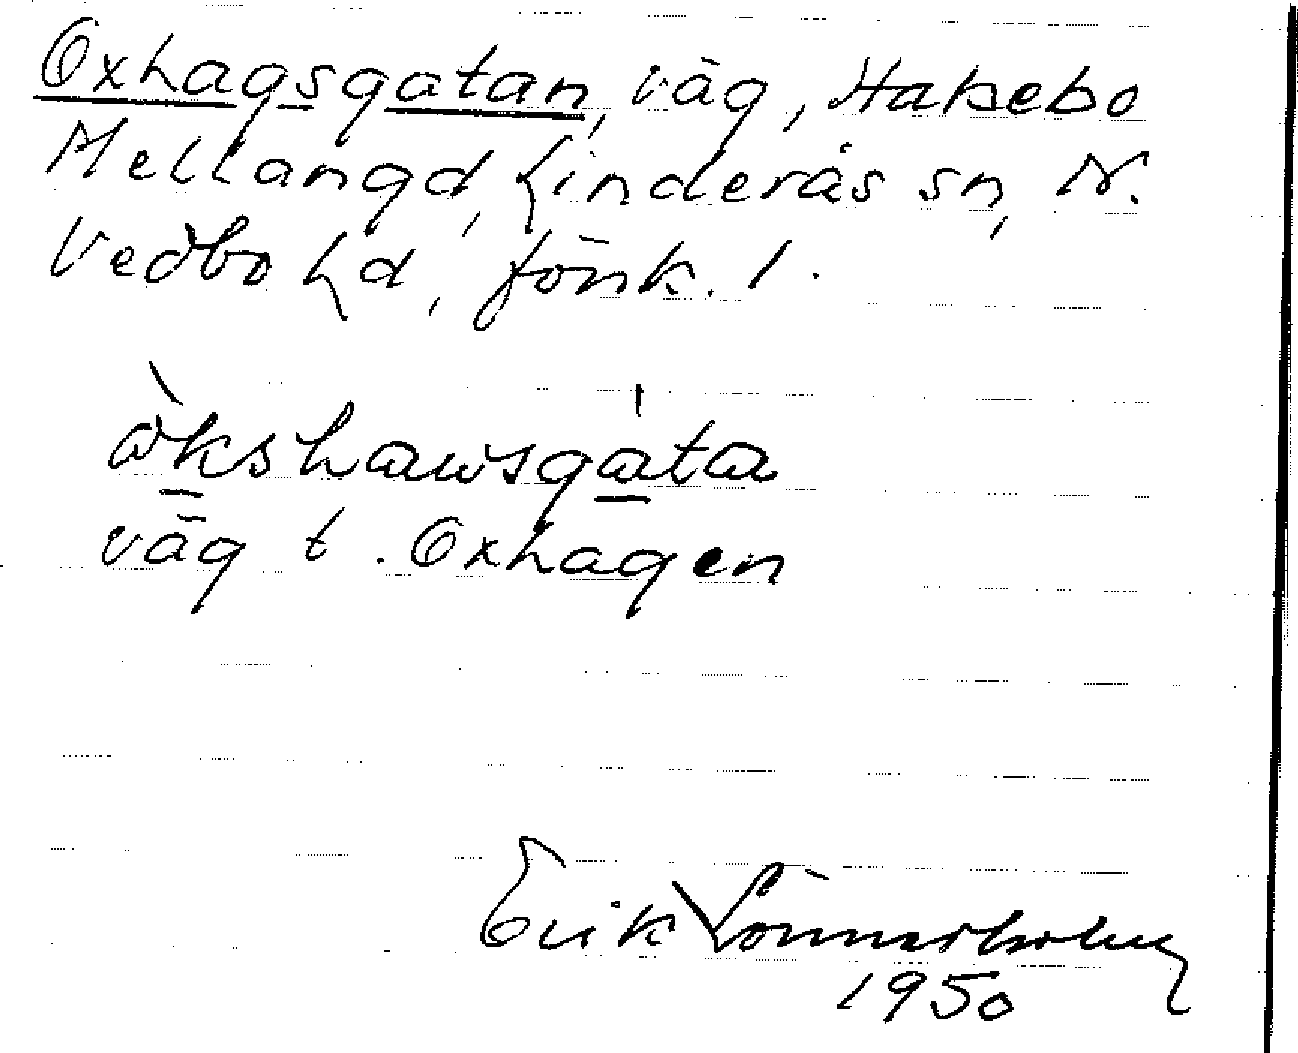 Oxhagsgatan, väg, Hakebo
Mellangd, Linderås sn, N.
Vedbo hd, Jönk. l.
åkshawsgata
väg t. Oxhagen
Erik Lönnerholm
1950